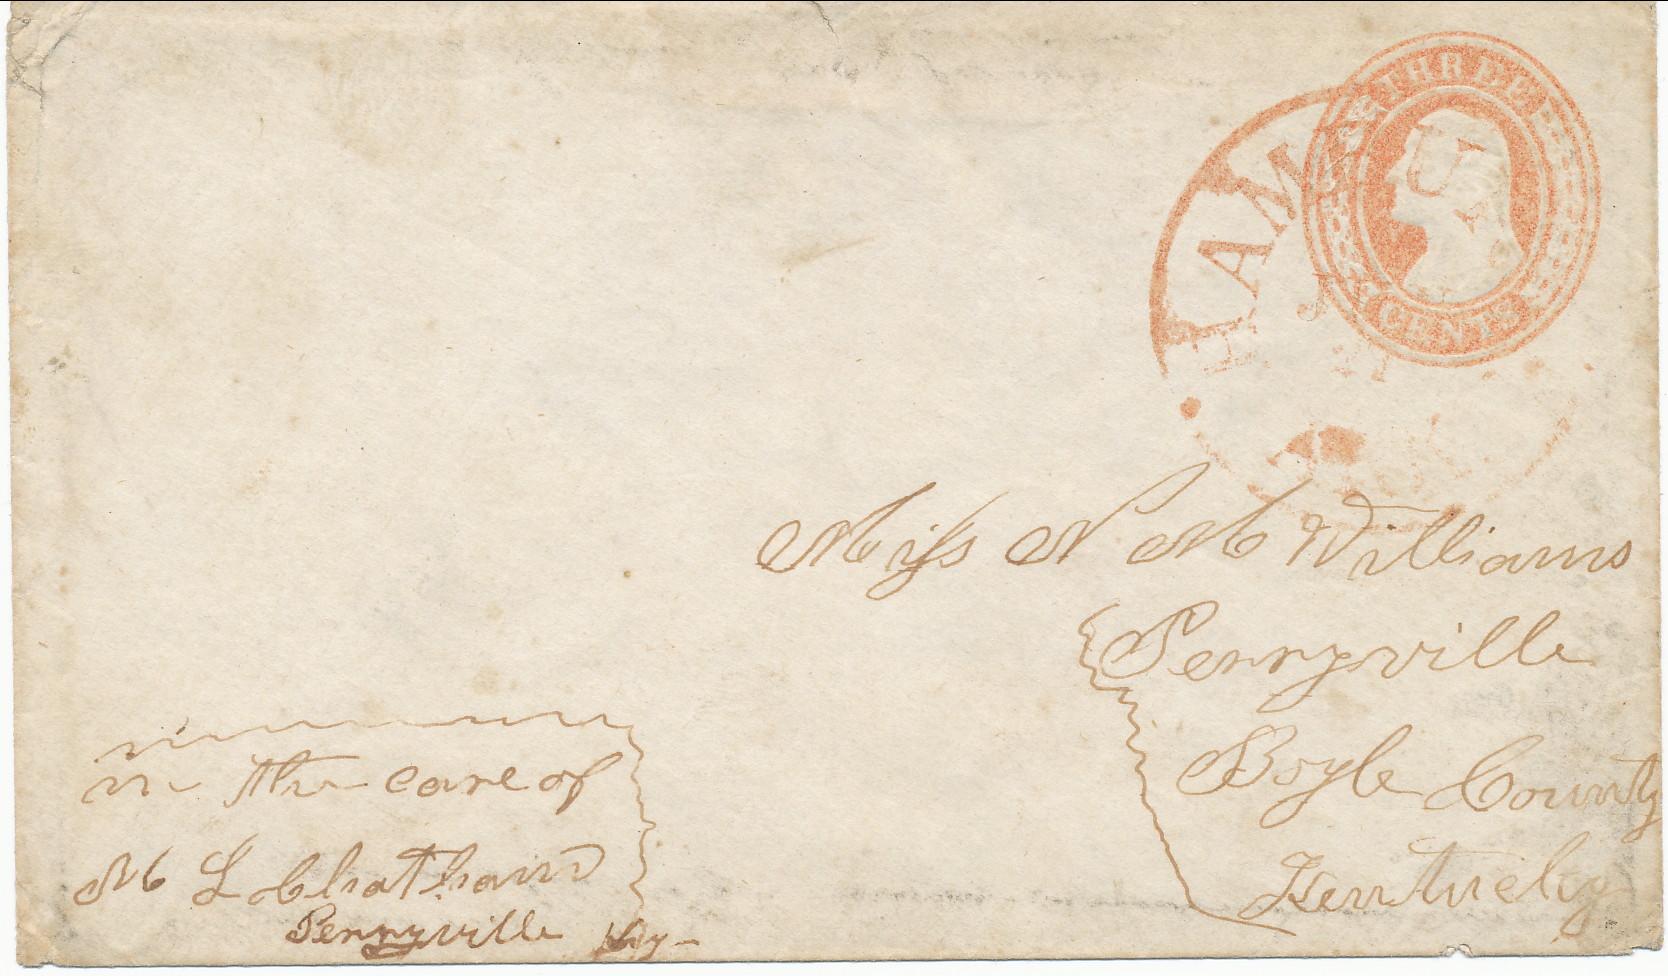 THREE
CENTS
HAM
U
Miss N M Williams
Perryville
Boyle County
Kentucky
in the care of
M L Chatham
Perryville Ky-